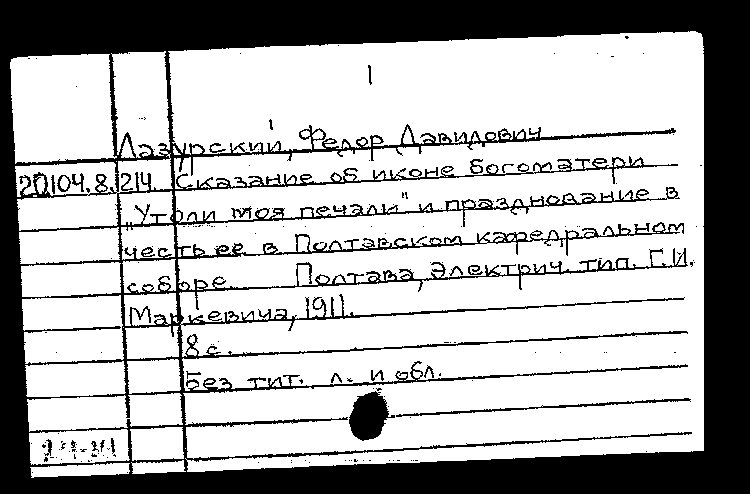 1
Лазурский, Федор Давидович
20104.8.214. Сказание об иконе богоматери
„Утоли моя печали" и празднование в
честь ее в Полтавском кафедральном
соборе. Полтава, Электрич. тип. Г.И.
Маркевича, 1911.
8 с.
Без тит. л. и обл.